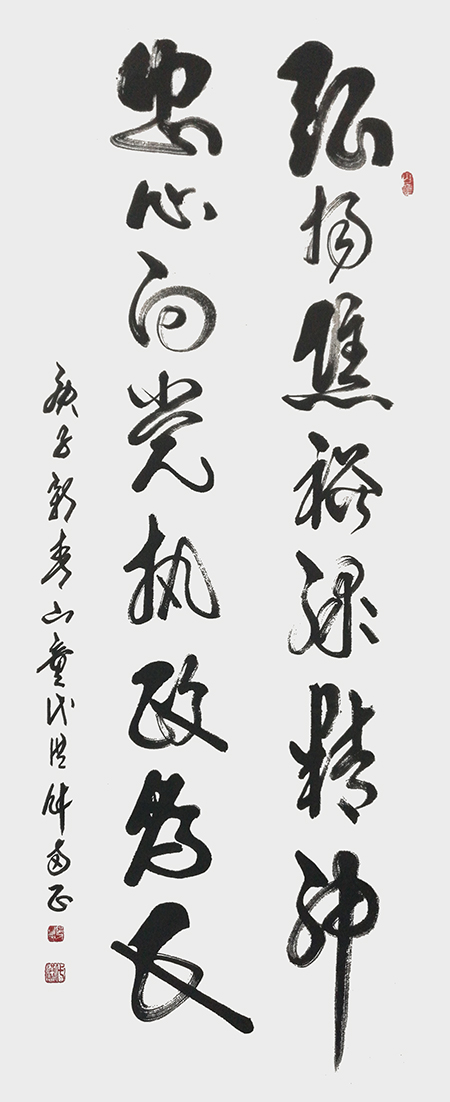 弘扬焦裕禄精神
忠心向党执政为民
庚子新春山童